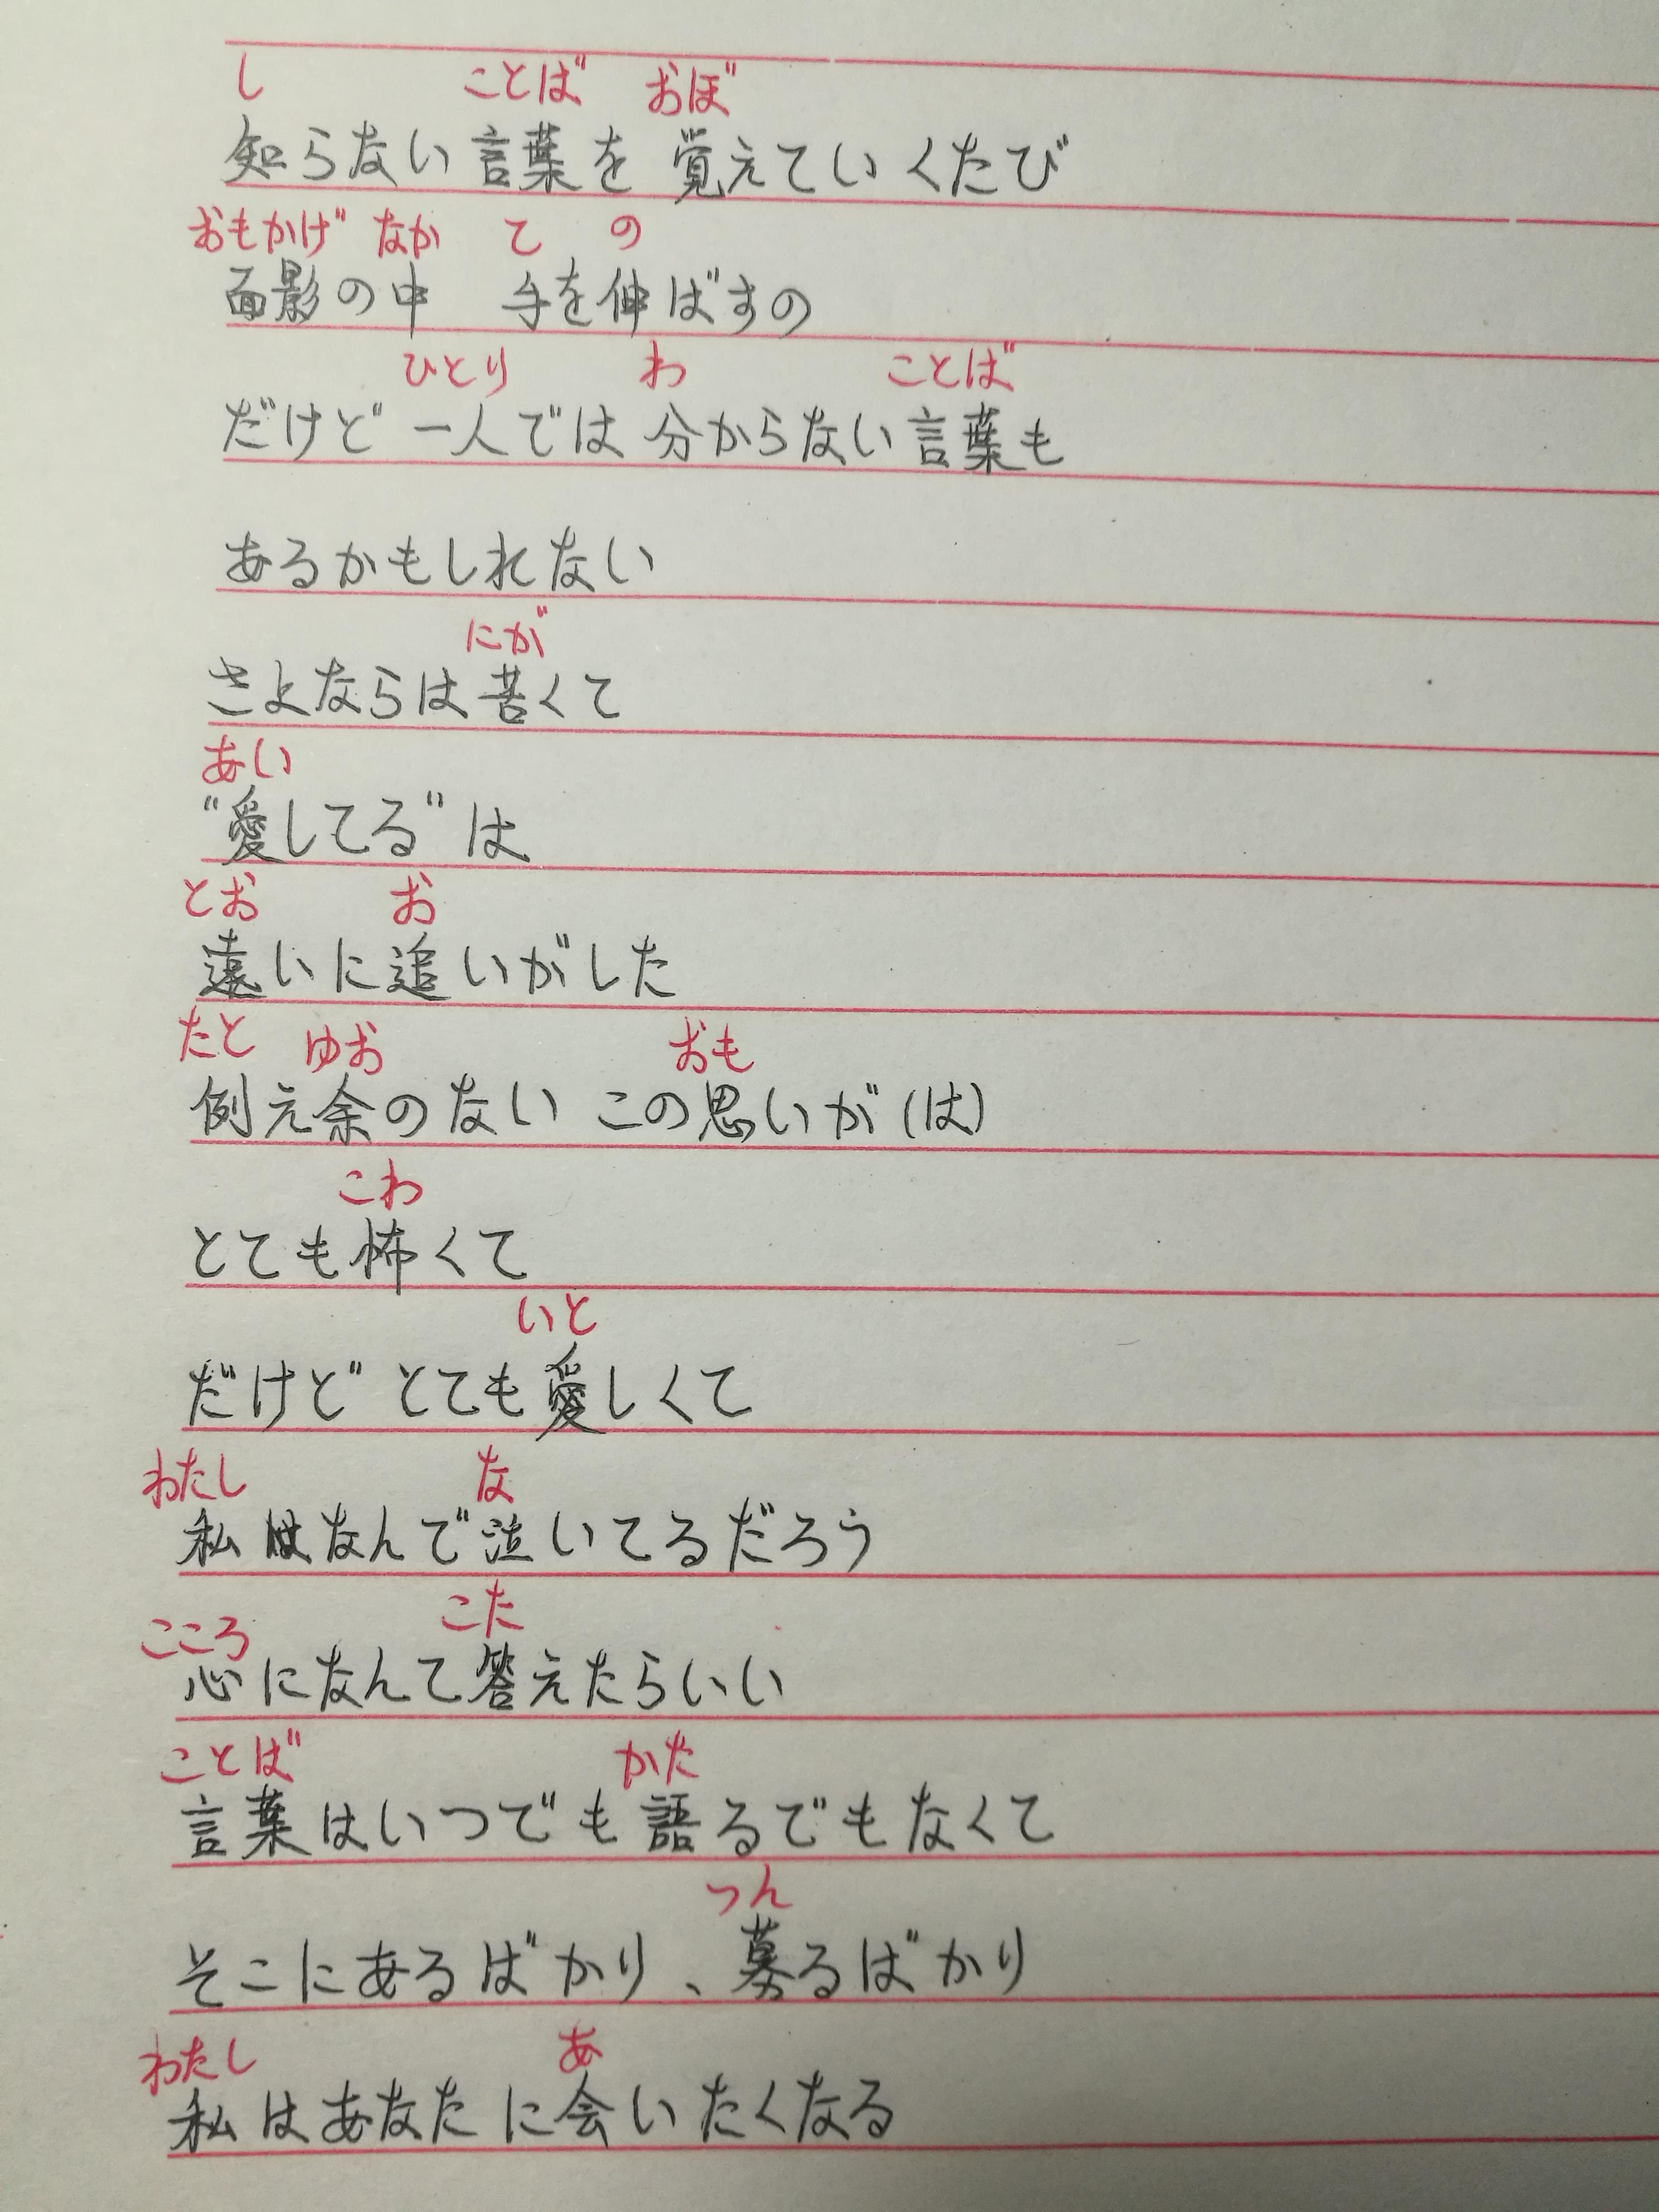 し ことば おぼ
知らない言葉を 覚えていくたび
おもかげ なか て の
面影の中 手を伸ばすの
ひとり わ ことば
だけど 一人では 分からない言葉も
あるかもしれない
にが
さよならは苦くて
あい
"愛してる"は
とお お
遠いに追いがした
たと ゆお おも
例え余のない この思いが(は)
こわ
とても怖くて
いと
だけど とても愛しくて
わたし な
私はなんで泣いてるだろう
こころ こた
心になんて答えたらいい
ことば かた
言葉はいつでも語るでもなくて
つん
そこにあるばかり、募るばかり
わたし あ
私はあなたに会いたくなる